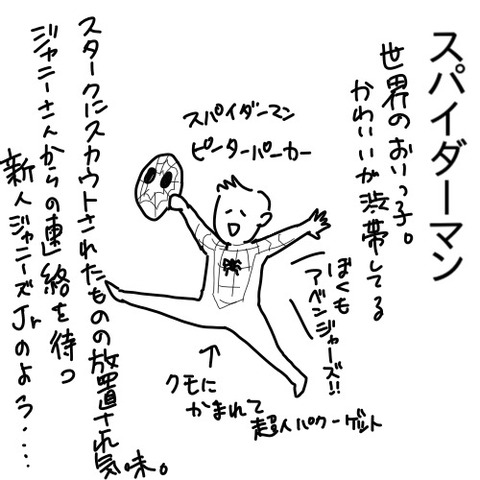 スパイダーマン
世界のおいっ子。
かわいいが渋滞してる
スパイダーマン
ピーターパーカー
ぼくも
アベンジャーズ!!
クモに
かまれて
超人パワーゲット
スタークにスカウトされたものの放置され気味。
ジャニーさんからの連絡を待つ
新人ジャニーズJrのよう・・・・